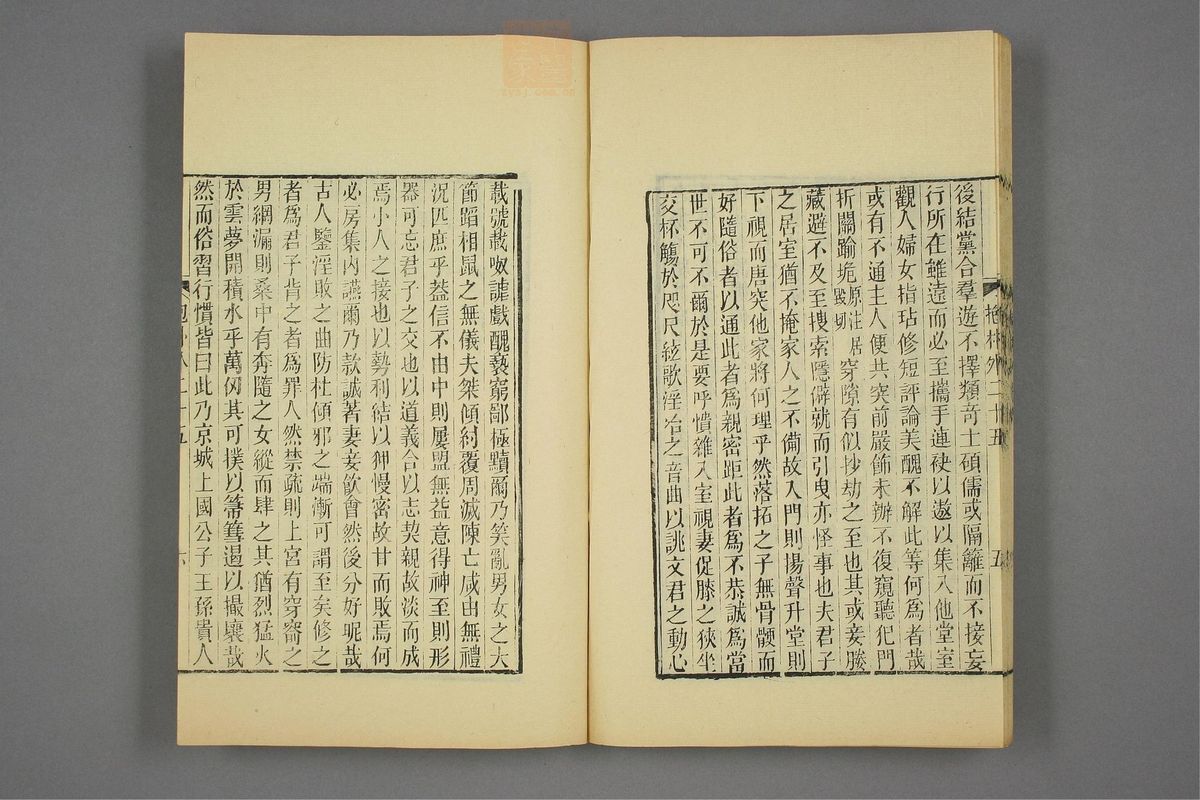 後結黨合羣遊不擇類竒士碩儒或隔籬而不接妄
行所在雖遠而必至攜手連袂以遨以集入他堂室
觀人婦女指玷修短評論美醜不解此等何爲者哉
或有不通主人便共突前嚴飾未辦不復窺聽犯門
折關踰垝原注居毀切穿隙有似抄劫之至也其或妾媵
藏避不及至搜索隱僻就而引曳亦怪事也夫君子
之居室猶不掩家人之不備故入門則揚聲升堂則
下視而唐突他家將何理乎然落拓之子無骨骾而
好隨俗者以通此者爲親密距此者爲不恭誠爲當
世不可不爾於是要呼憒雜入室視妻促膝之狹坐
交杯觴於咫尺絃歌淫冶之音曲以誂文君之動心
抱朴外二十五
五
載號載呶謔戲醜褻窮鄙極黷爾乃笑亂男女之大
節蹈相鼠之無儀夫桀傾紂覆周滅陳亡咸由無禮
況匹庶乎葢信不由中則屢盟無益意得神至則形
器可忘君子之交也以道義合以志契親故淡而成
焉小人之接也以勢利結以狎慢密故甘而敗焉何
必房集內讌爾乃款誠著妻妾飮會然後分好昵哉
古人鑒淫敗之曲防杜傾邪之端漸可謂至矣修之
者爲君子背之者爲罪人然禁疏則上宮有穿窬之
男網漏則桑中有奔隨之女縱而肆之其猶烈猛火
於雲夢開積水乎萬仞其可撲以箒篲遏以撮壤哉
然而俗習行慣皆曰此乃京城上國公子王孫貴人
六